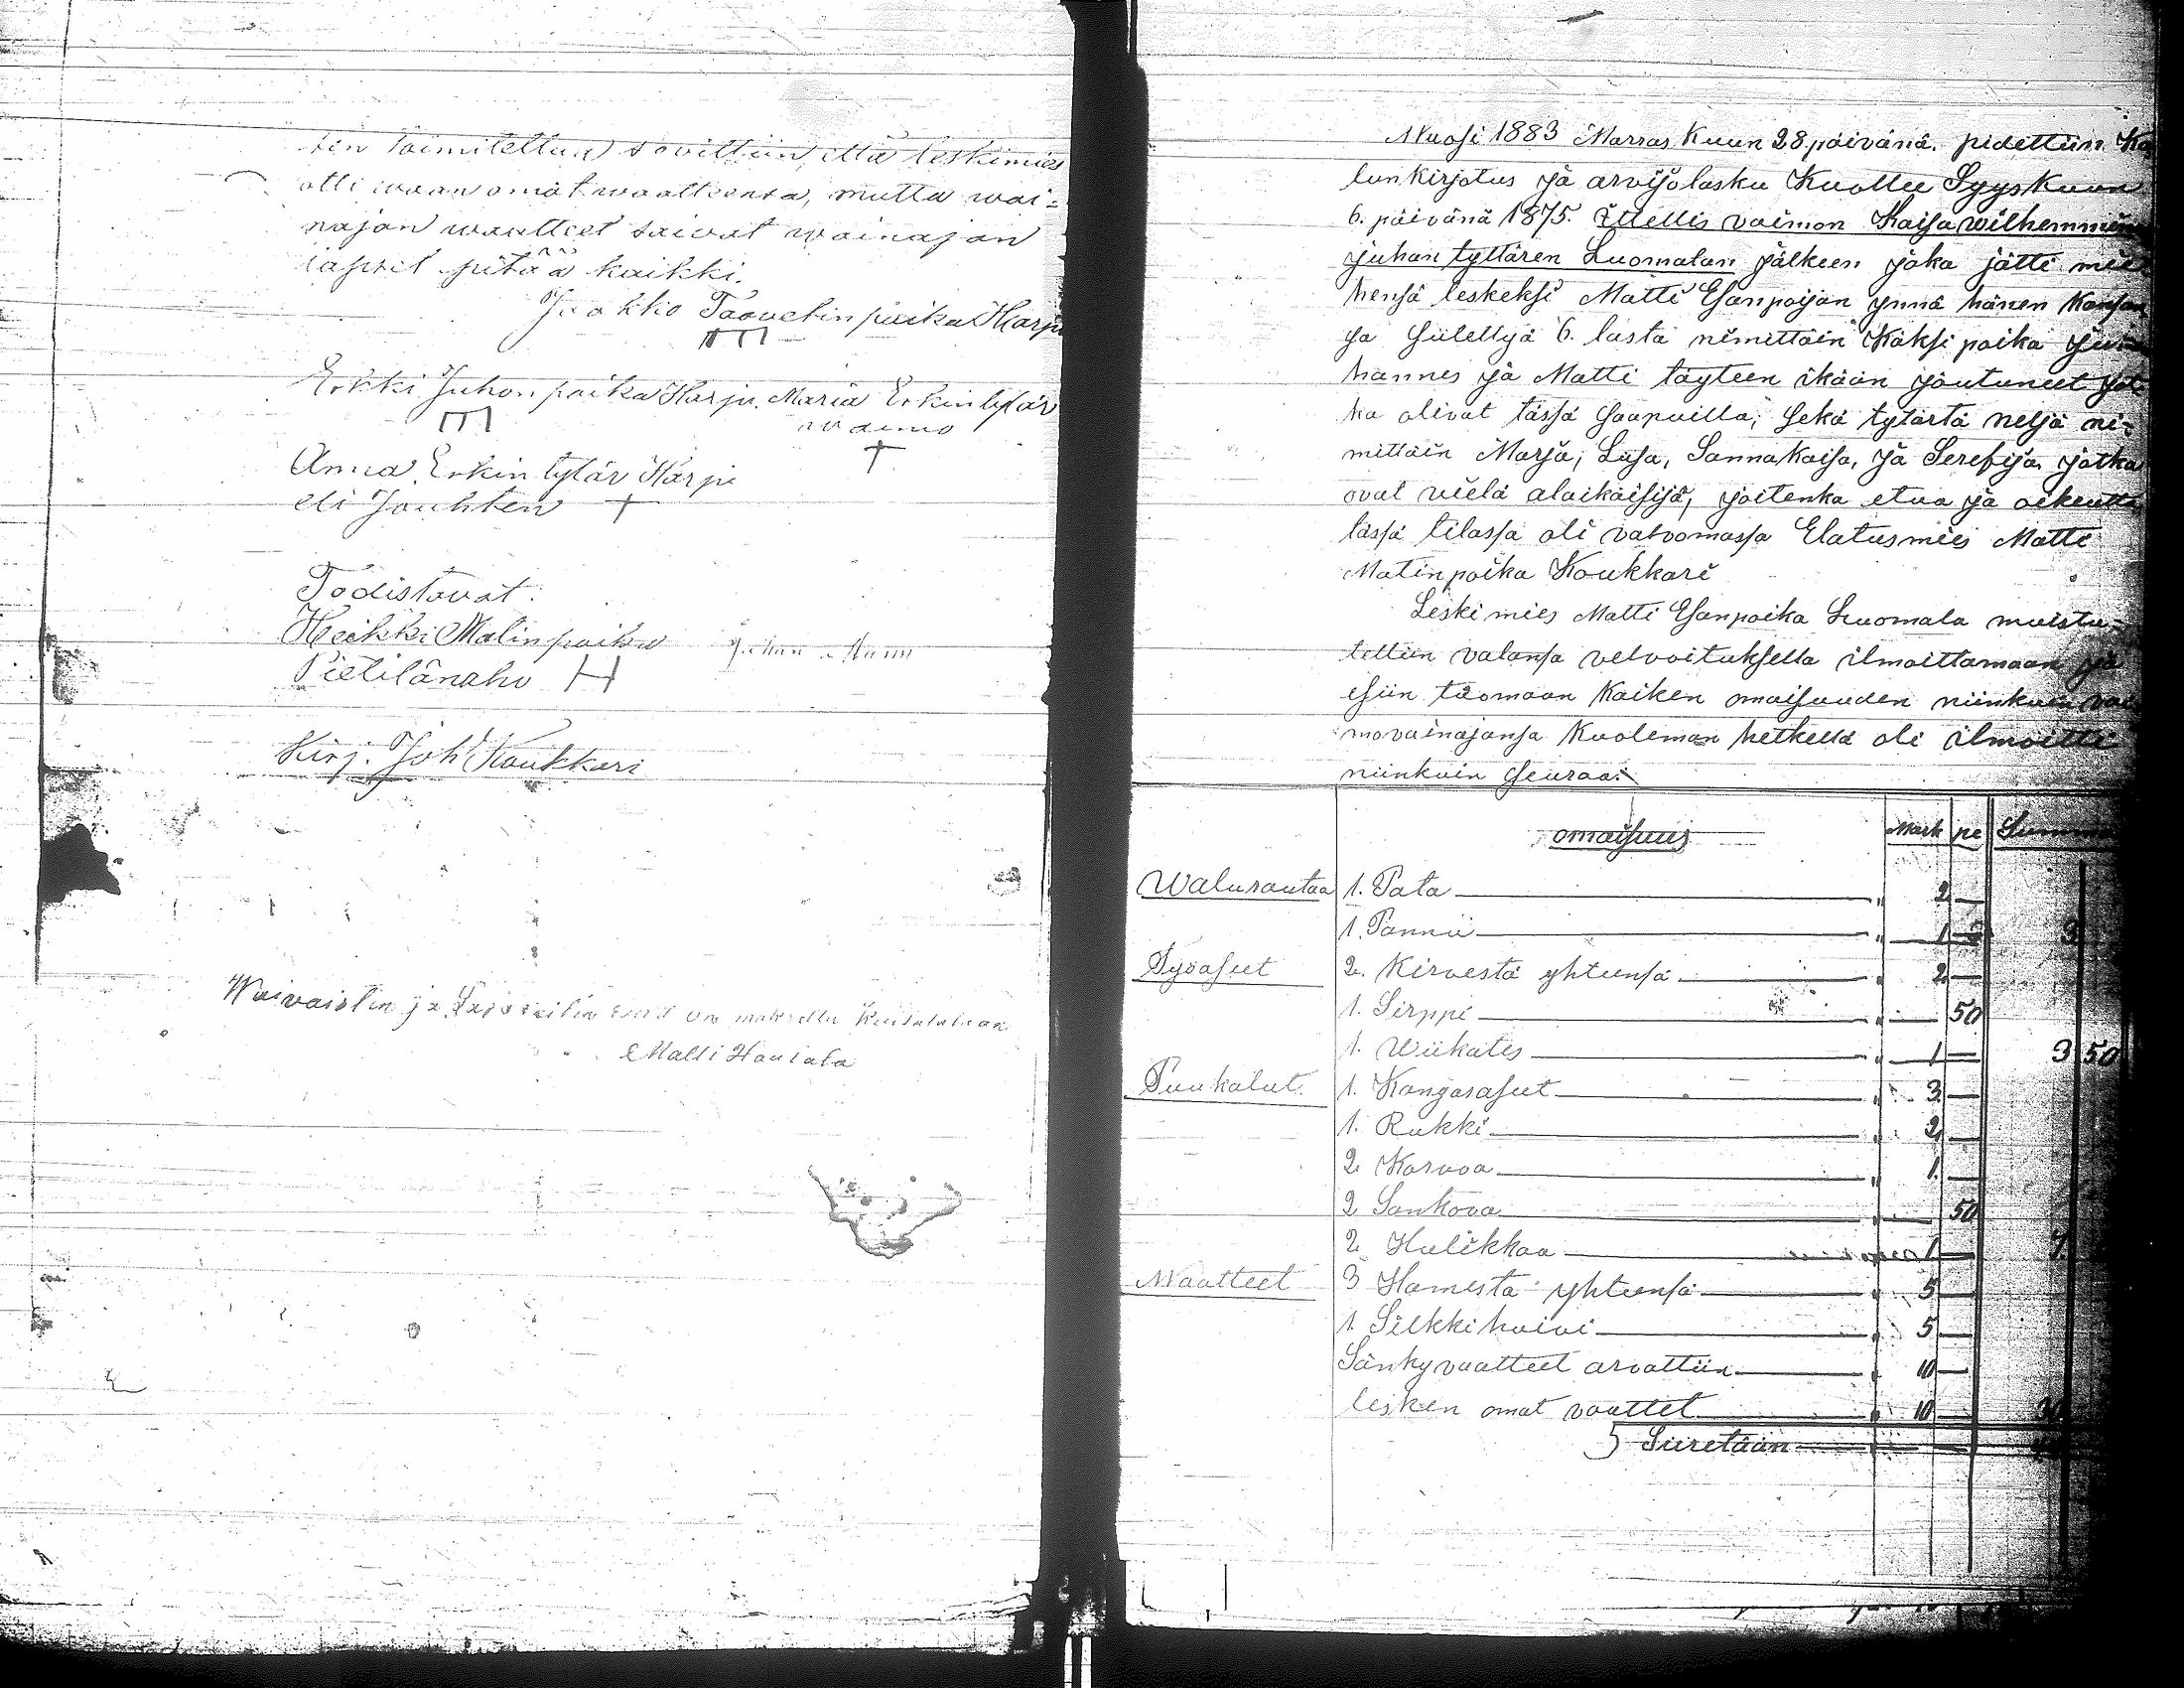 sin toimitettua sovittiin, että leskimies
otti waan omat waatteensa, mutta wai=
najan waatteet saivat wainajan
lapset pitää kaikki.
Jaakko Taavetin poika Harju
Erkki Juhon poika Harju. Maria Erkintytär
waimo
Anna Erkin tytär Harju
eli Jouhten
Todistavat.
Heikki Matinpoika
Pietilänaho H
Kirj. Joh Koukkari
Waivaistin ja on maksettu
Matti Hautala
Wuosi 1883 Marras Kuun 28 päivänä. pidettiin Ka
lunkirjotus ja arvijolasku Kuollee Syyskuun
6. päivänä 1875. Itellis vaimon Kaisa wilhemmiina
juhan tyttären Luomalan jälkeen joka jätti mie
hensä leskeksi Matti Esanpoijan ynnä hänen kansan
sa siitettyä 6. lasta nimittäin Kaksi poika Ju
hannes ja Matti täyteen ikään joutuneet jot
ka olivat tässä saapuilla, sekä tytärtä neljä ni=
mittäin Marja, Liisa, Sanna Kaisa, ja Serefija jotka
ovat vielä alaikäisijä, joitenka etua ja oikeutta
tässä tilassa oli valvomassa Elatusmies Matti
Matinpoika Koukkari
Leski mies Matti Esanpoika Luomala muistu=
tettiin valansa velvoituksella ilmoittamaan ja
esiin tuomaan Kaiken omaisuuden niinkuin vai
movainajansa Kuoleman hetkellä oli ilmoitti
niinkuin seuraa:
omaisuus Mark pe Summa
Walurautaa 1. Pata " 2 —
1. Pannu " 1 — 3
Työaseet 2. Kirvestä yhteensä " 2 —
1. Sirppi " — 50
1. Wiikates " 1 — 3 50
Puukalut 1. Kangasaseet " 3 —
1. Rukki " 2 —
2 Korvoa " 1 —
2 Sankova " — 50
2 Hulikkaa 1 — 7
Waatteet 3 Hamesta yhteensä " 5 —
1. Silkki huivi " 5 —
Sänky vaatteet arvattiin " 10 —
lesken omat vaattet " 10 — 30
Siiretään